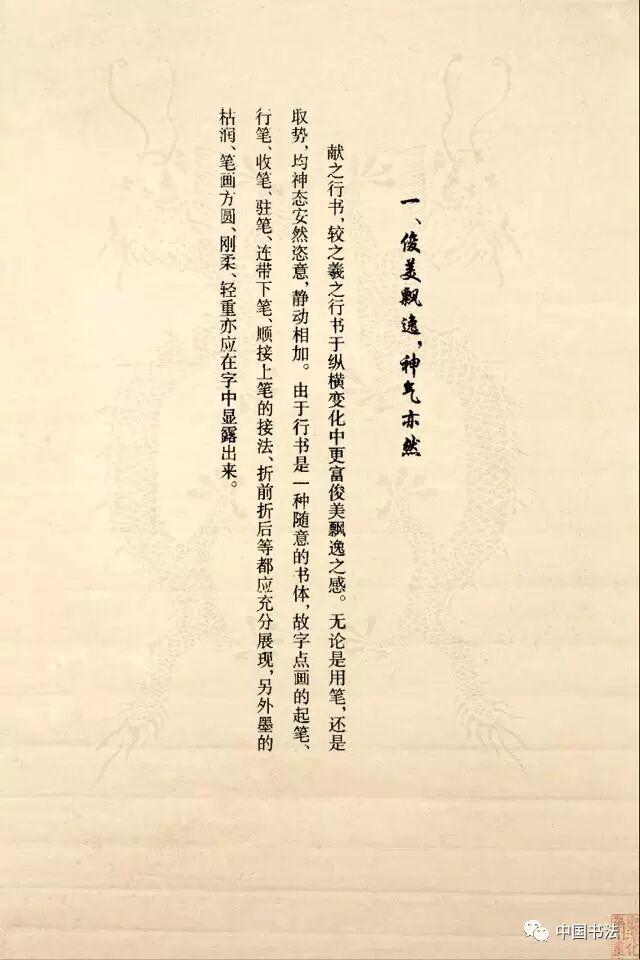 一、俊美飘逸，神气亦然
献之行书，较之羲之行书于纵横变化中更富俊美飘逸之感。无论是用笔，还是
取势，均神态安然恣意，静动相加。由于行书是一种随意的书体，故字点画的起笔、
行笔、收笔、驻笔、连带下笔、顺接上笔的接法、折前折后等都应充分展现，另外墨的
枯润、笔画方圆、刚柔、轻重亦应在字中显露出来。
中国书法